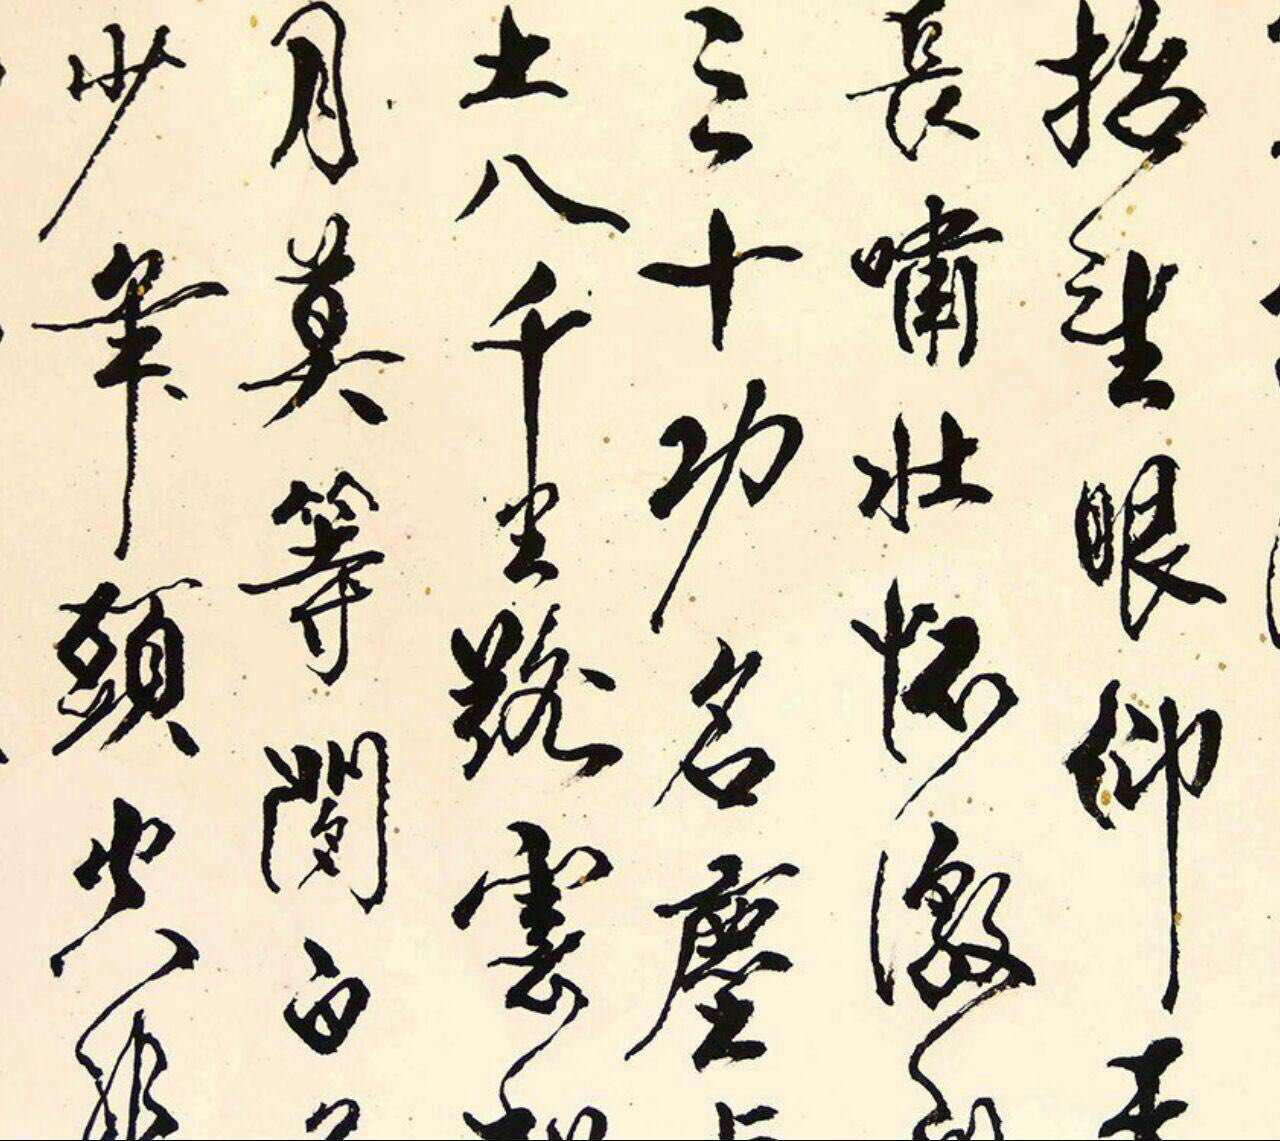 抬望眼仰天
長嘯壯懷激
三十功名塵
土八千里路雲
月莫等閒白
少年頭空悲